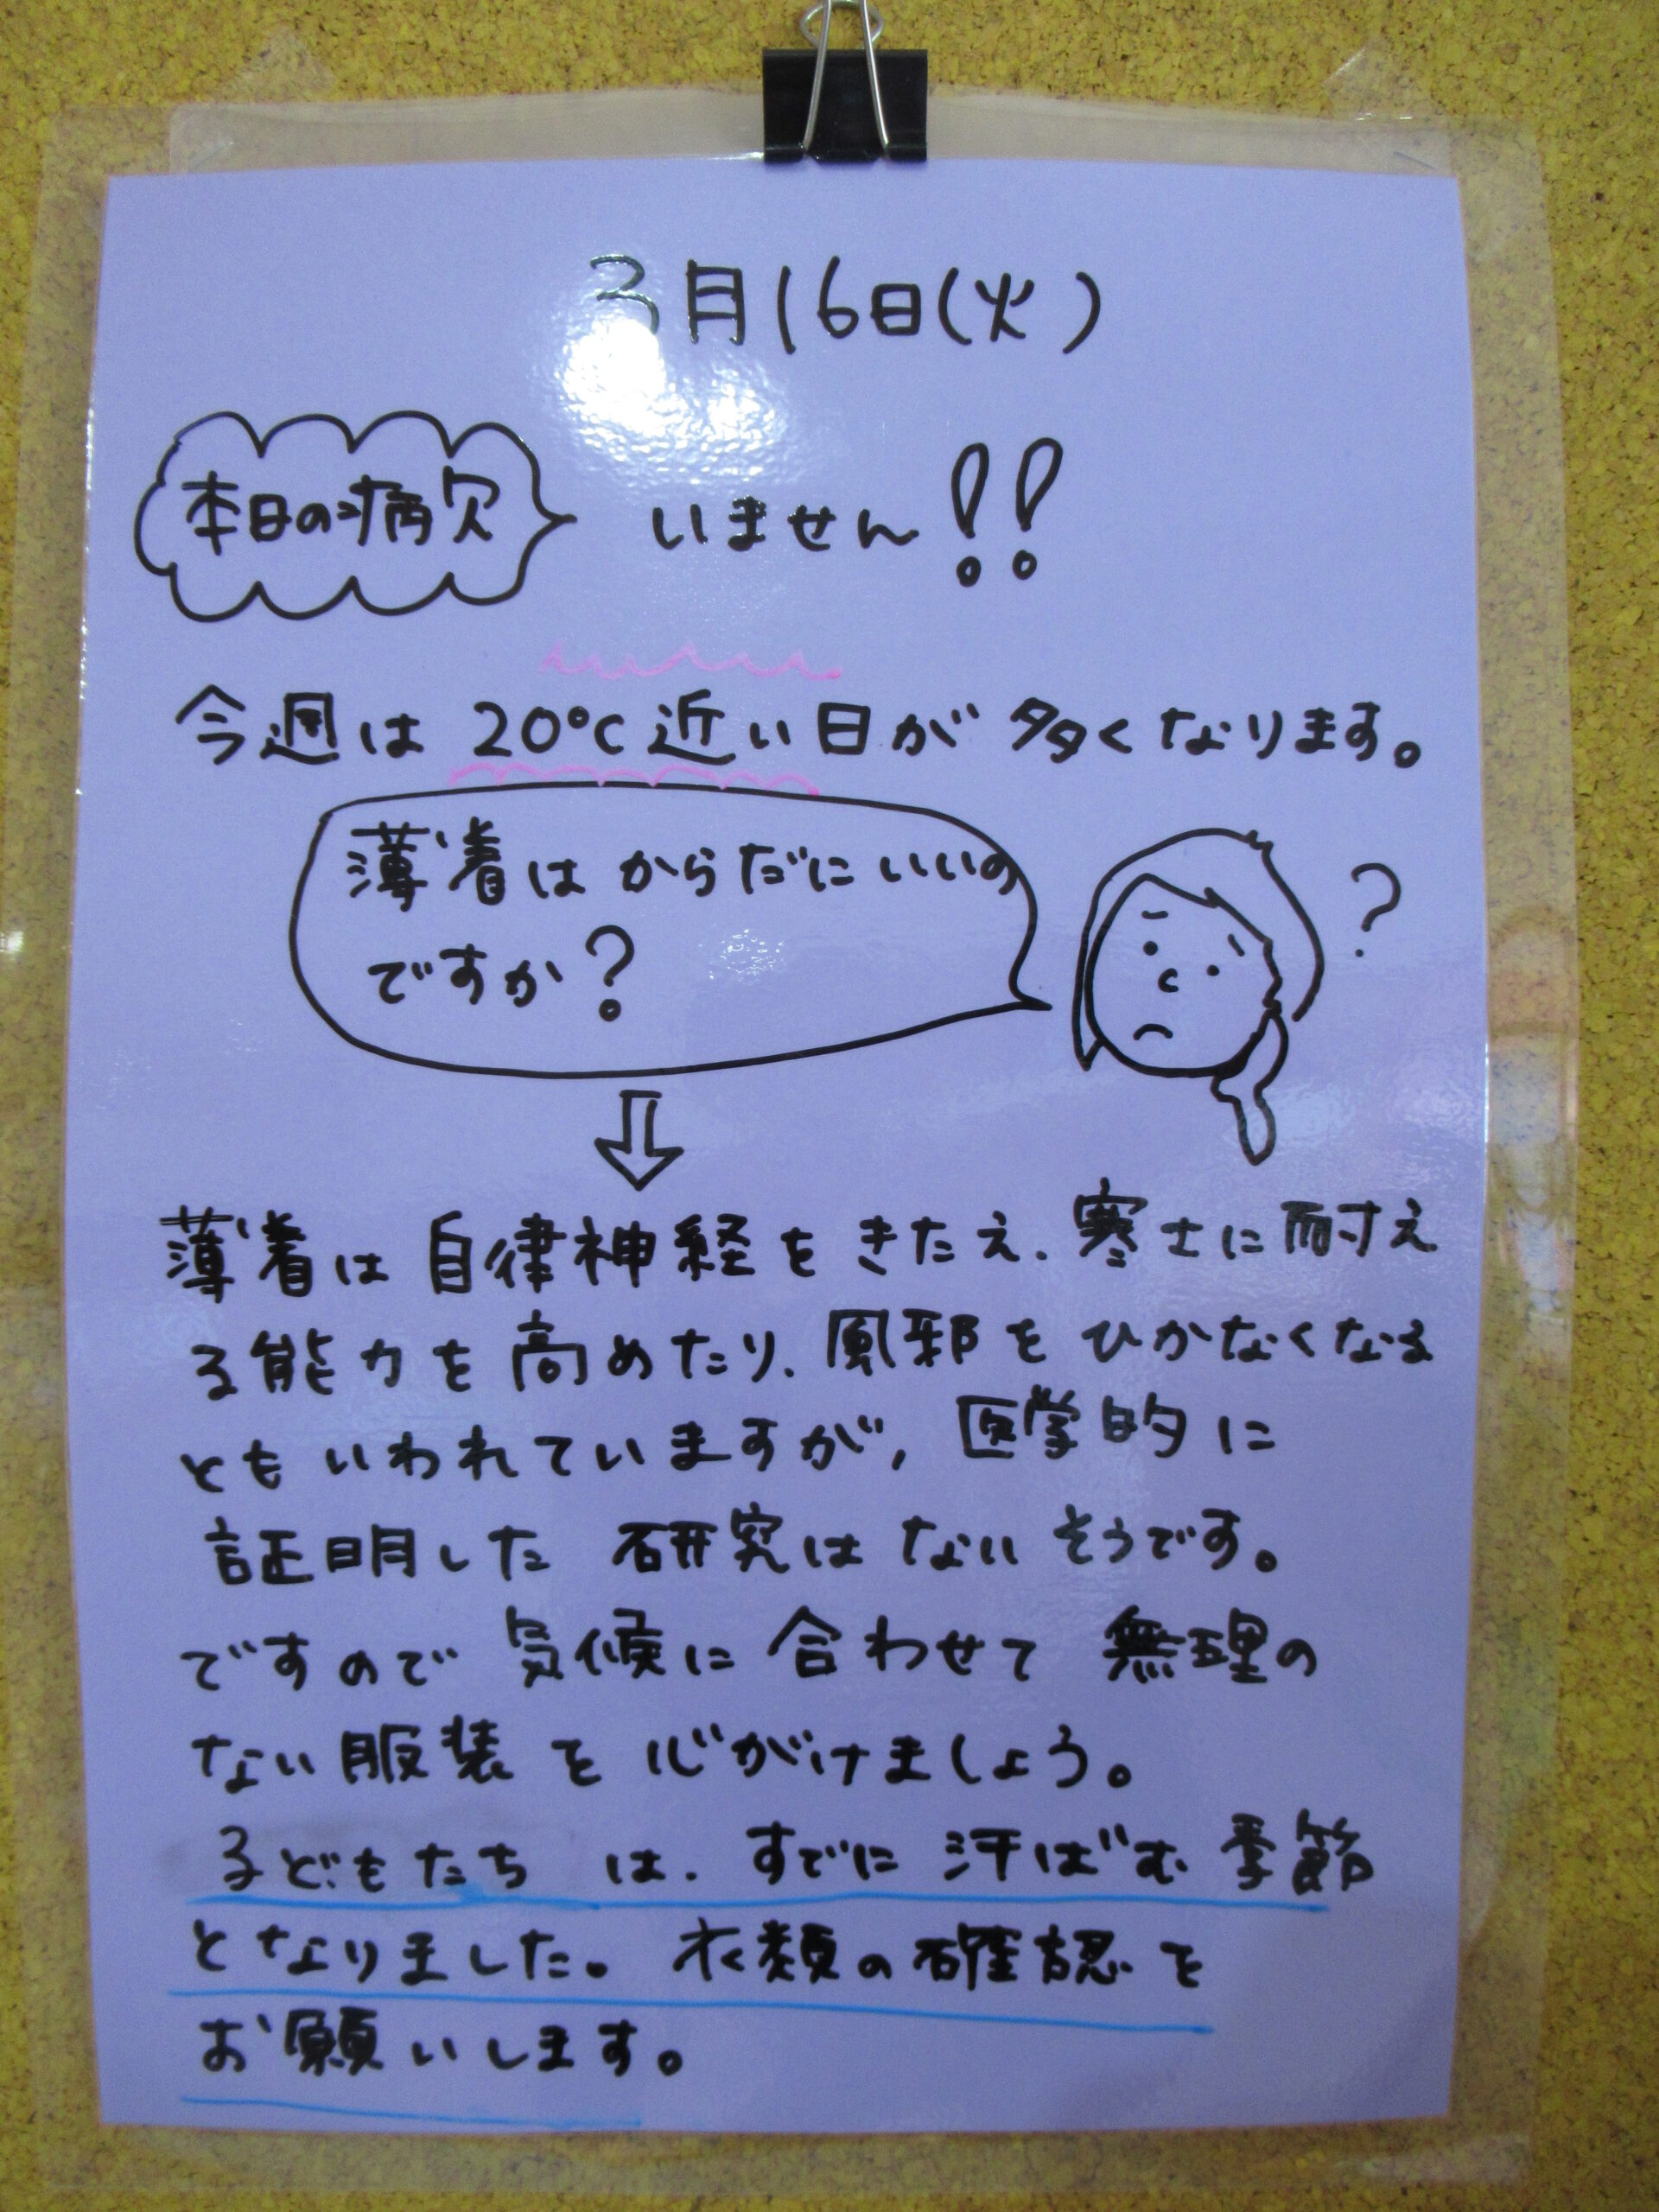 3月16日(火)
本日の病欠
いません!!
今週は20℃近い日が多くなります。
薄着はからだにいいの
ですか?
?
薄着は自律神経をきたえ、寒さに耐え
る能力を高めたり、風邪をひかなくなる
ともいわれていますが、医学的に
証明した研究はないそうです。
ですので気候に合わせて無理の
ない服装を心がけましょう。
子どもたちは、すでに汗ばむ季節
となりました。衣類の確認を
お願いします。